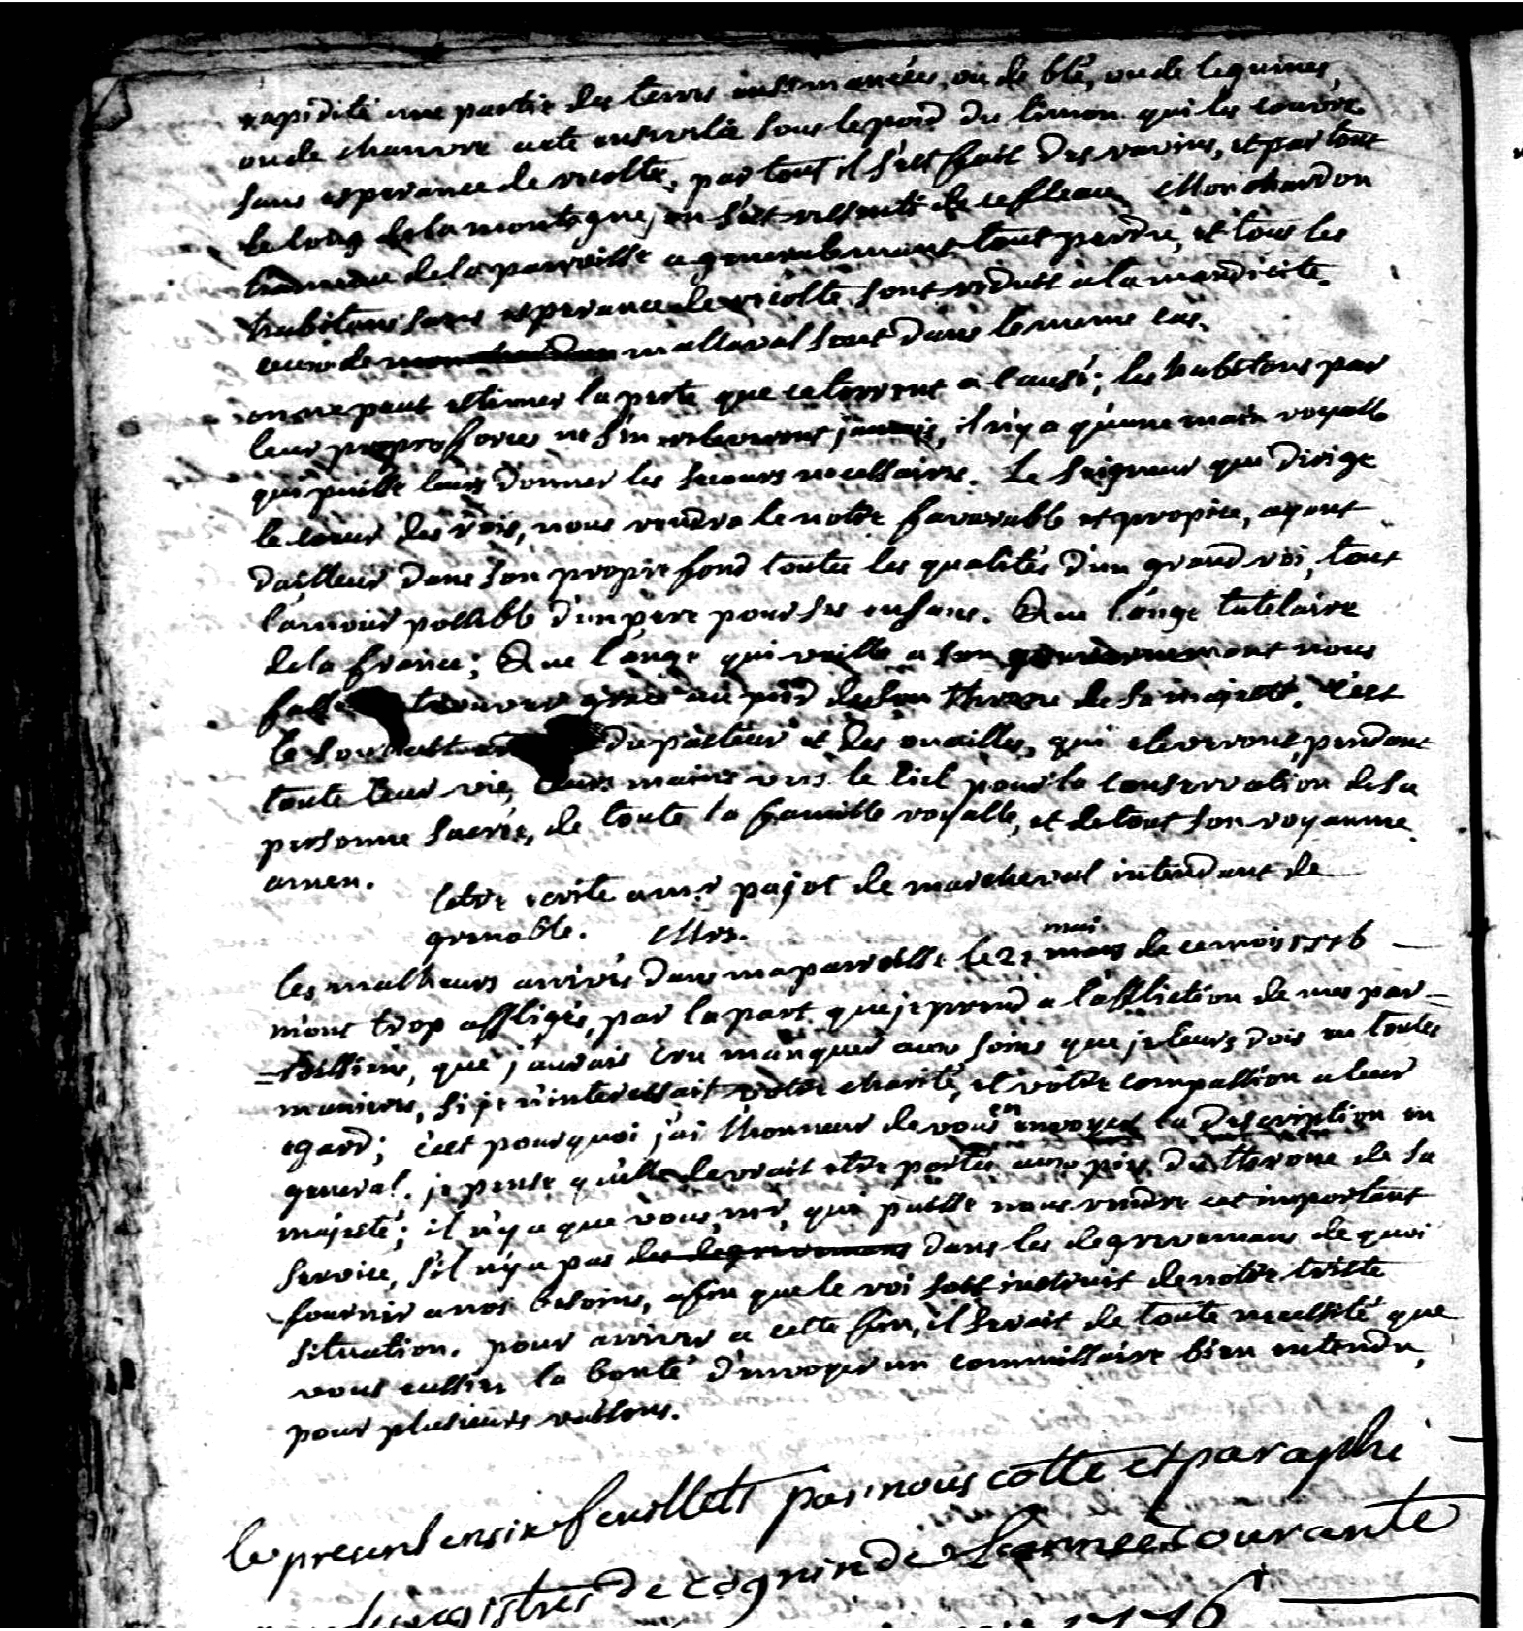 rapidité une partie des terres ensemancées, ou de blé, ou de legumes,
ou de chanvre a eté ensevelie sous le poid du limon qui les couvre
sans esperance de recolte, par tout il s'est fait des ravins, et par tout
le long de la montagne, on s'est ressenti de ce fleau, Monchardon
hameau de la parroisse a generalement tout perdu, et tous les
habitans sans esperance de recolte sont reduit a la mendicité.
ceux de mallaval sont dans le meme cas.
on ne peut estimer la perte que ce torrent a causé; les habitans par
leur propre forces ne s'en releveront jamais, il n'y a qu'une main royalle
qui puisse leurs donner les secours necessaire. Le seigneur qui dirige
le coeur des rois, nous rendra le notre favorable et propice, ayant
d'ailleur dans son propre fond toutes les qualités d'un grand roi, tout
l'amour possible d'un pere pour ses enfans. Que l'ange tutelaire
de la france; Que l'ange qui veille a son gouvernement nous
fasse trouver grace au pied de son throne de sa majesté. c'est
le du pasteur et des ouailles, qui eleveront, pendant
toute leur vie, leurs mains vers le ciel pour la conservation de sa
personne sacrée, de toute la famille royalle, et de tout son royaume.
amen.
letre ecrite a mr pajot de marcheval intendant de
grenoble. Mr.
mai
les malheurs arrivés dans ma parroisse le 21 mars de ce mois 1776
m'ont trop affligés, par la part que je prend a l'affliction de mes par=
=roissiens, que j'aurais cru manquer aux soins que je leurs dois en toutes
manieres, si je n'interessait votre charité, et votre compassion a leur
egard; c'est pourquoi j'ai l'honneur de vous en envoyer la description en
general. je pense qu'elle devrait etre portée aux pieds du throne de sa
majesté; il n'y a que vous, mr, qui puisse nous rendre cet important
service, s'il n'y a pas des degrevemens dans les degrevemans de quoi
fournir a nos besoins, afin que le roi soit instruit de notre triste
situation. pour arriver a cette fin, il serait de toute necessité que
vous eussiez la bonté d'envoyer un commissaire bien entendu,
pour plusieurs raisons.
le present en six feuillets par nous cotte et paraphé
registres de cognin de l'année courante
1776